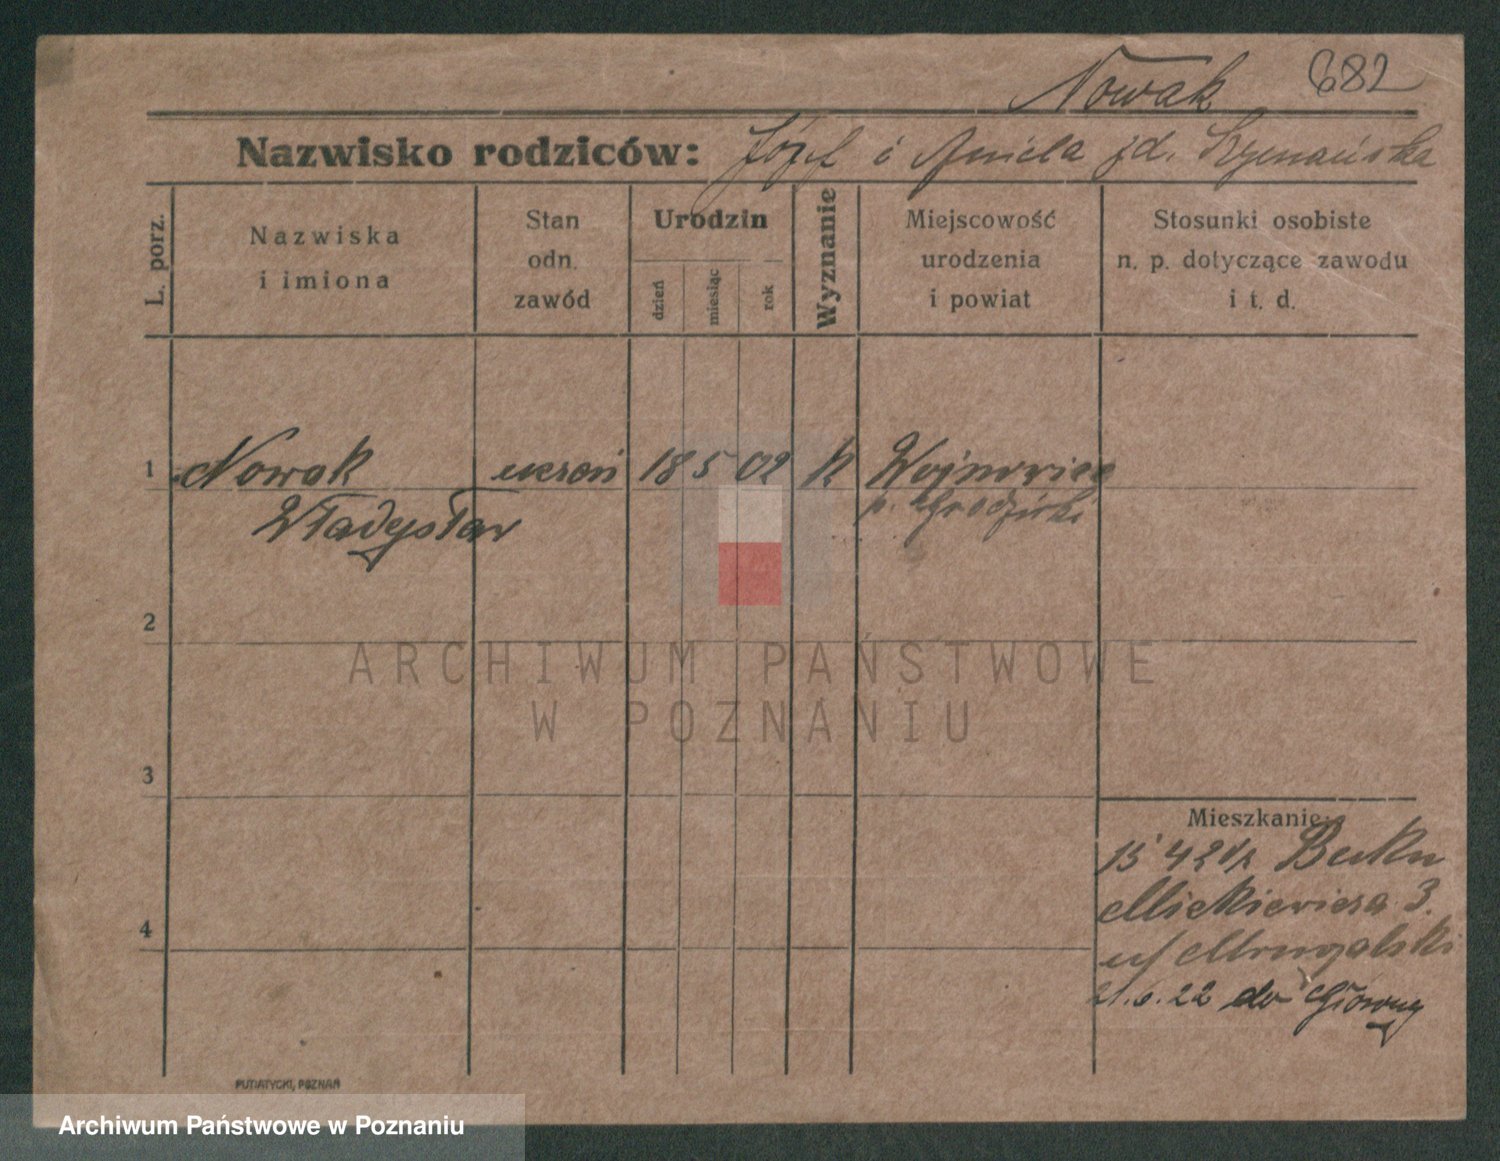 Nowak 682
Nazwisko rodziców: Józef i Aniela zd. Szymańska
L. porz.
Nazwiska
i imiona
Stan
odn.
zawód
Urodzin
dzień
miesiąc
rok
Wyznanie
Miejscowość
urodzenia
i powiat
Stosunki osobiste
n. p. dotyczące zawodu
i t. d.
1 Nowak uczeń 18 5 02 k Wojnowice
Władysław p. Grodzisk
2
ARCHIWUM PAŃSTWOWE
W POZNANIU
3
Mieszkanie:
15 4 21 Buku
Mickiewicza 3.
4
21.6.22 do Główny
PUTIATYCKI, POZNAŃ
Archiwum Państwowe w Poznaniu